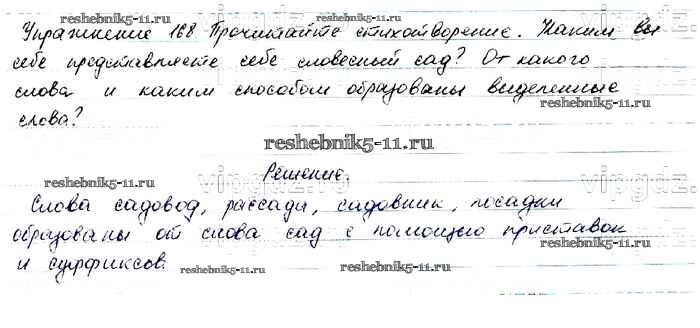 reshebnik5-11.ru
Упражнение 168 Прочитайте стихотворение. Каким вы
себе представляете себе словесный сад? От какого
слова и каким способом образованы выделенные
reshebnik5-11.ru
слова?
reshebnik5-11.ru
vipgdz.ru
Решение.
reshebnik5-11.ru
reshebnik5-11.ru
Слова садовод, рассады, садовник, посадки
образованы от слова сад с помощью приставок
и суффиксов.
reshebnik5-11.ru
reshebnik5-11.ru